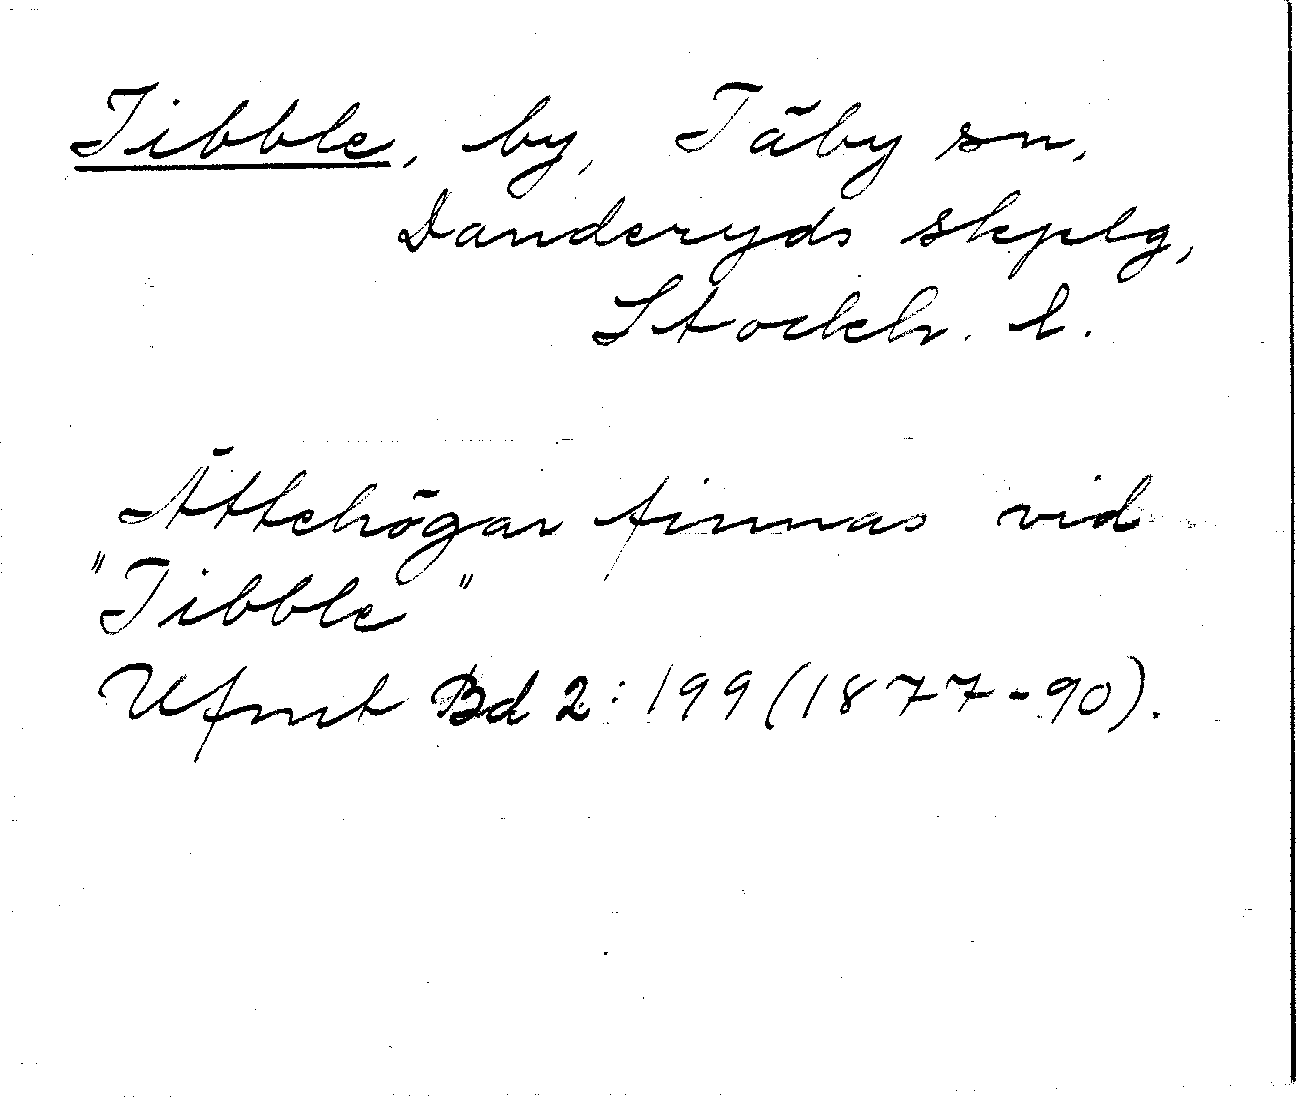 Tibble, by, Täby sn,
Danderyds skplg,
Stockh. l.
Ättehögar finnas vid
"Tibble"
Ufmt Bd 2: 199 (1877-90).